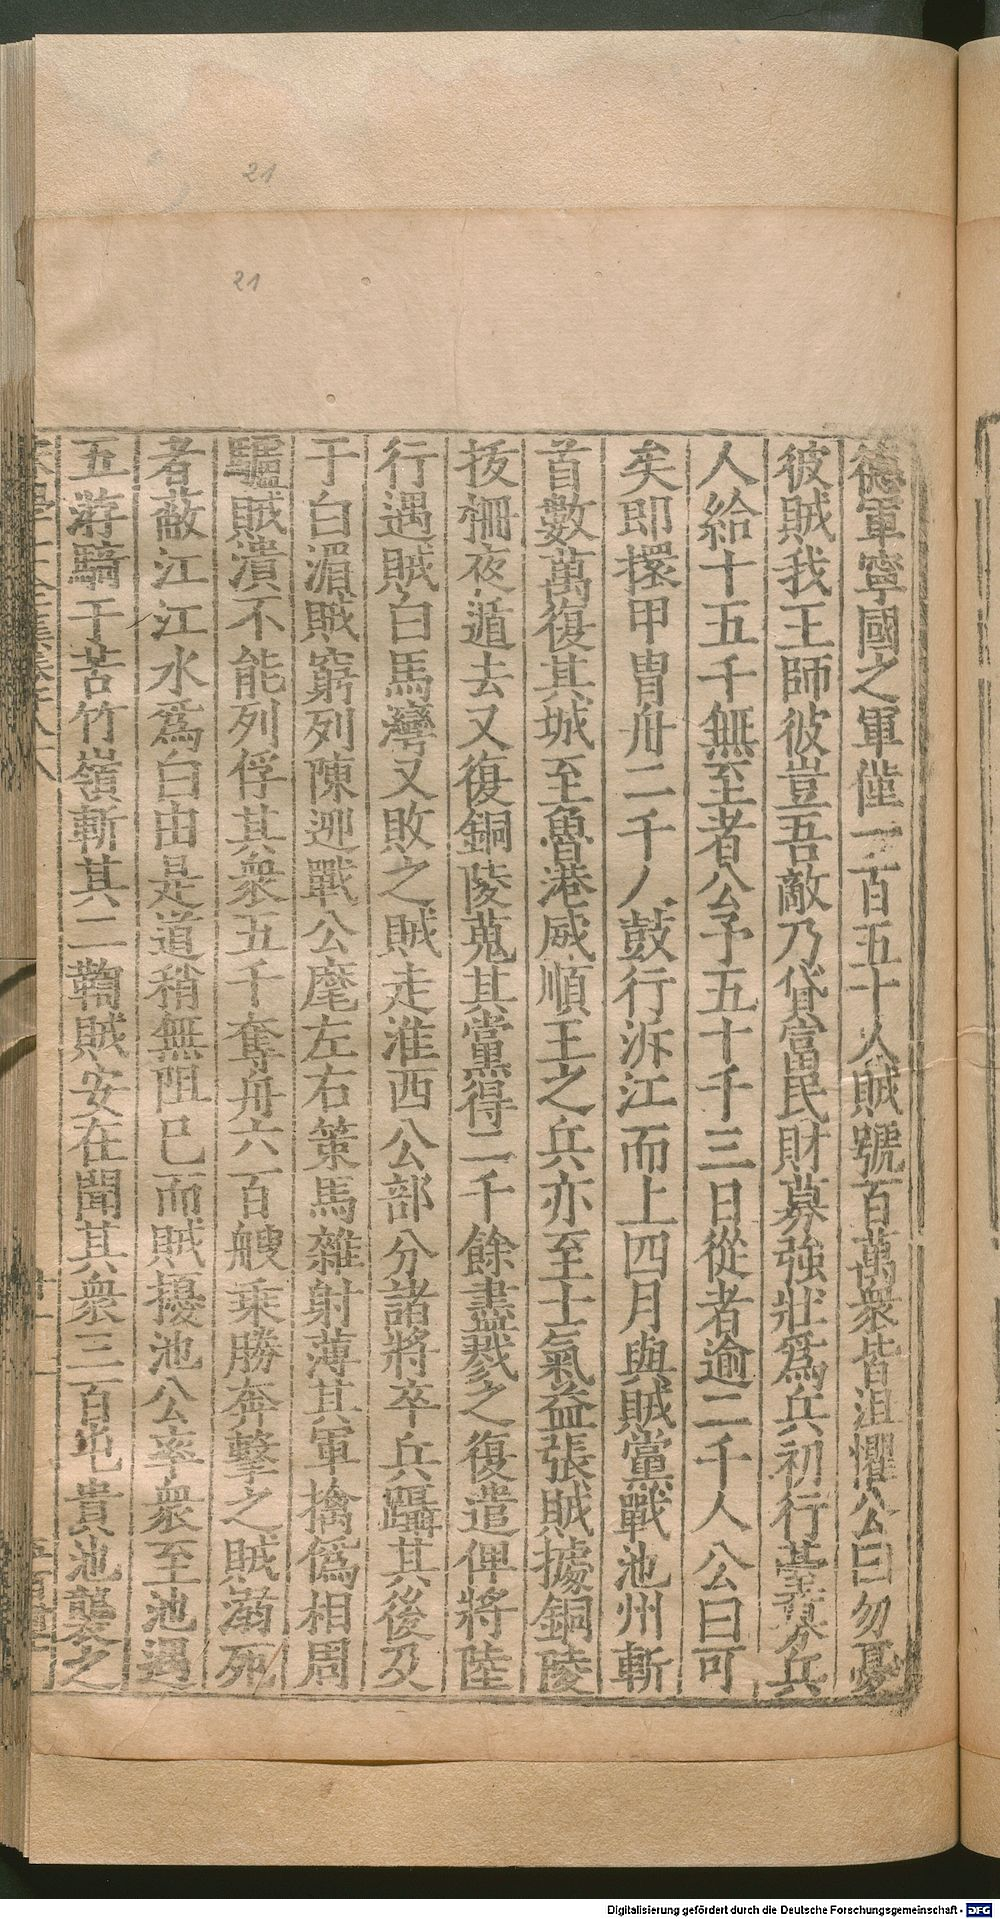 21
21
德軍寧國之軍僅一百五十人賊號百萬衆皆沮懼公曰勿憂
彼賊我王師彼豈吾敵乃貸富民財募強壯爲兵初行臺募兵
人給十五千無至者公予五十千三日從者逾二千人公曰可
矣即擐甲冑舟二千人鼓行泝江而上四月與賊黨戰池州斬
首數萬復其城至魯港威順王之兵亦至士氣益張賊據銅陵
拔柵夜遁去又復銅陵蒐其黨得二千餘盡戮之復遣俾將陸
行遇賊白馬灣又敗之賊走淮西公部分諸將卒兵躡其後及
于白湄賊窮列陳迎戰公麾左右策馬雜射薄其軍擒僞相周
驢賊潰不能列俘其衆五千奪舟六百艘乗勝奔擊之賊溺死
者蔽江江水爲白由是道稍無阻已而賊擾池公率衆至池遇
五游騎于苦竹嶺斬其二鞫賊安在聞其衆三百屯貴池襲之
Digitalisierung gefördert durch die Deutsche Forschungsgemeinschaft - DFG